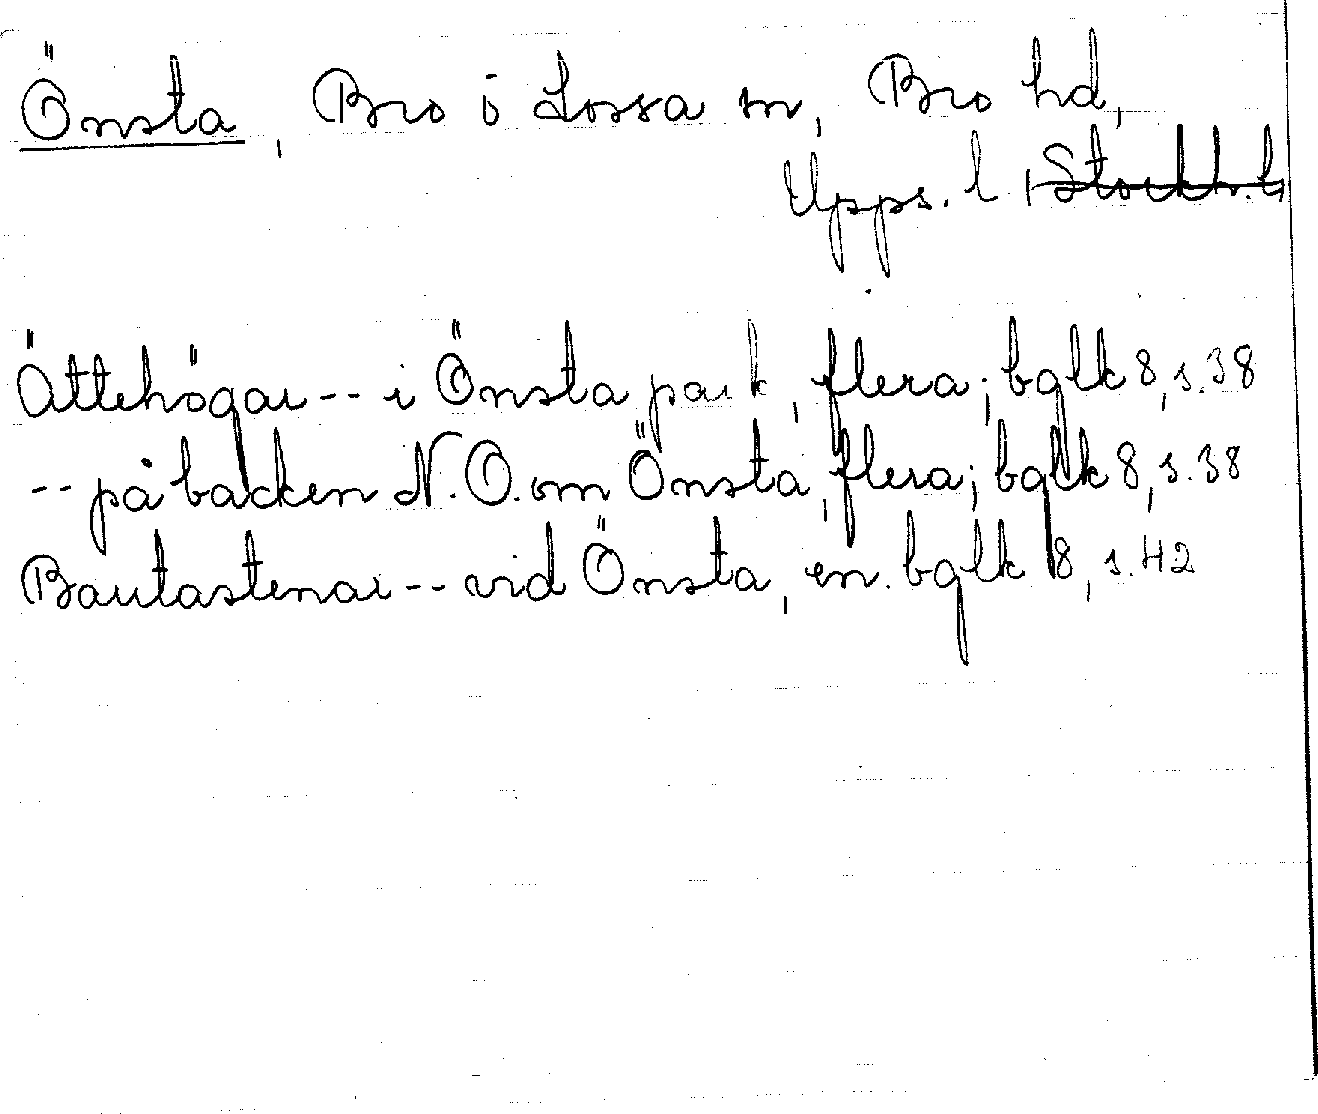 Önsta, Bro i Lossa sn, Bro hd,
Upps. l, Stockh. l
Ättehögar -- i Önsta park, flera; bglk 8, s. 38
-- på backen N.O. om Önsta, flera; bglk 8, s. 38
Bautastenar -- vid Önsta, en. bglk 8, s. 42